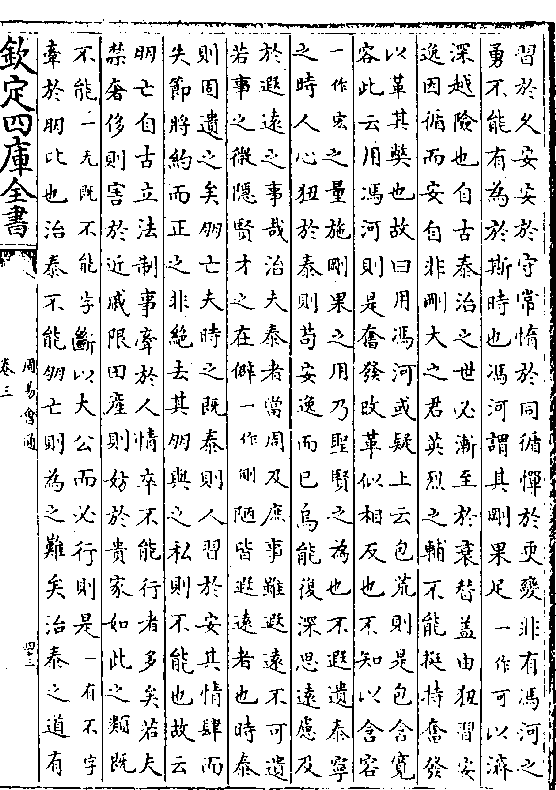 習於久安安於守常惰於因循憚於更變非有馮河之
勇不能有為於斯時也馮河謂其剛果足一作可以濟
深越險也自古泰治之世必漸至於衰替蓋由狃習安
逸因循而安自非剛大之君英烈之輔不能挺特奮發
以革其獘也故曰用馮河或疑上云包荒則是包含寛
容此云用馮河則是奮發改革似相反也不知以含容
一作宏之量施剛果之用乃聖賢之為也不遐遺泰寧
之時人心狃於泰則苟安逸而已烏能復深思遠慮及
於遐遠之事哉治夫泰者當周及庶事雖遐遠不可遺
若事之微隱賢才之在僻一作側陋皆遐遠者也時泰
則固遺之矣朋亡夫時之既泰則人習於安其情肆而
失節將約而正之非絶去其朋與之私則不能也故云
朋亡自古立法制事牽於人情卒不能行者多矣若夫
禁奢侈則害於近戚限田産則妨於貴家如此之類既
不能一无既不能字斷以大公而必行則是一有不字
牽於朋比也治泰不能朋亡則為之難矣治泰之道有
欽定四庫全書
周易㑹通
卷三